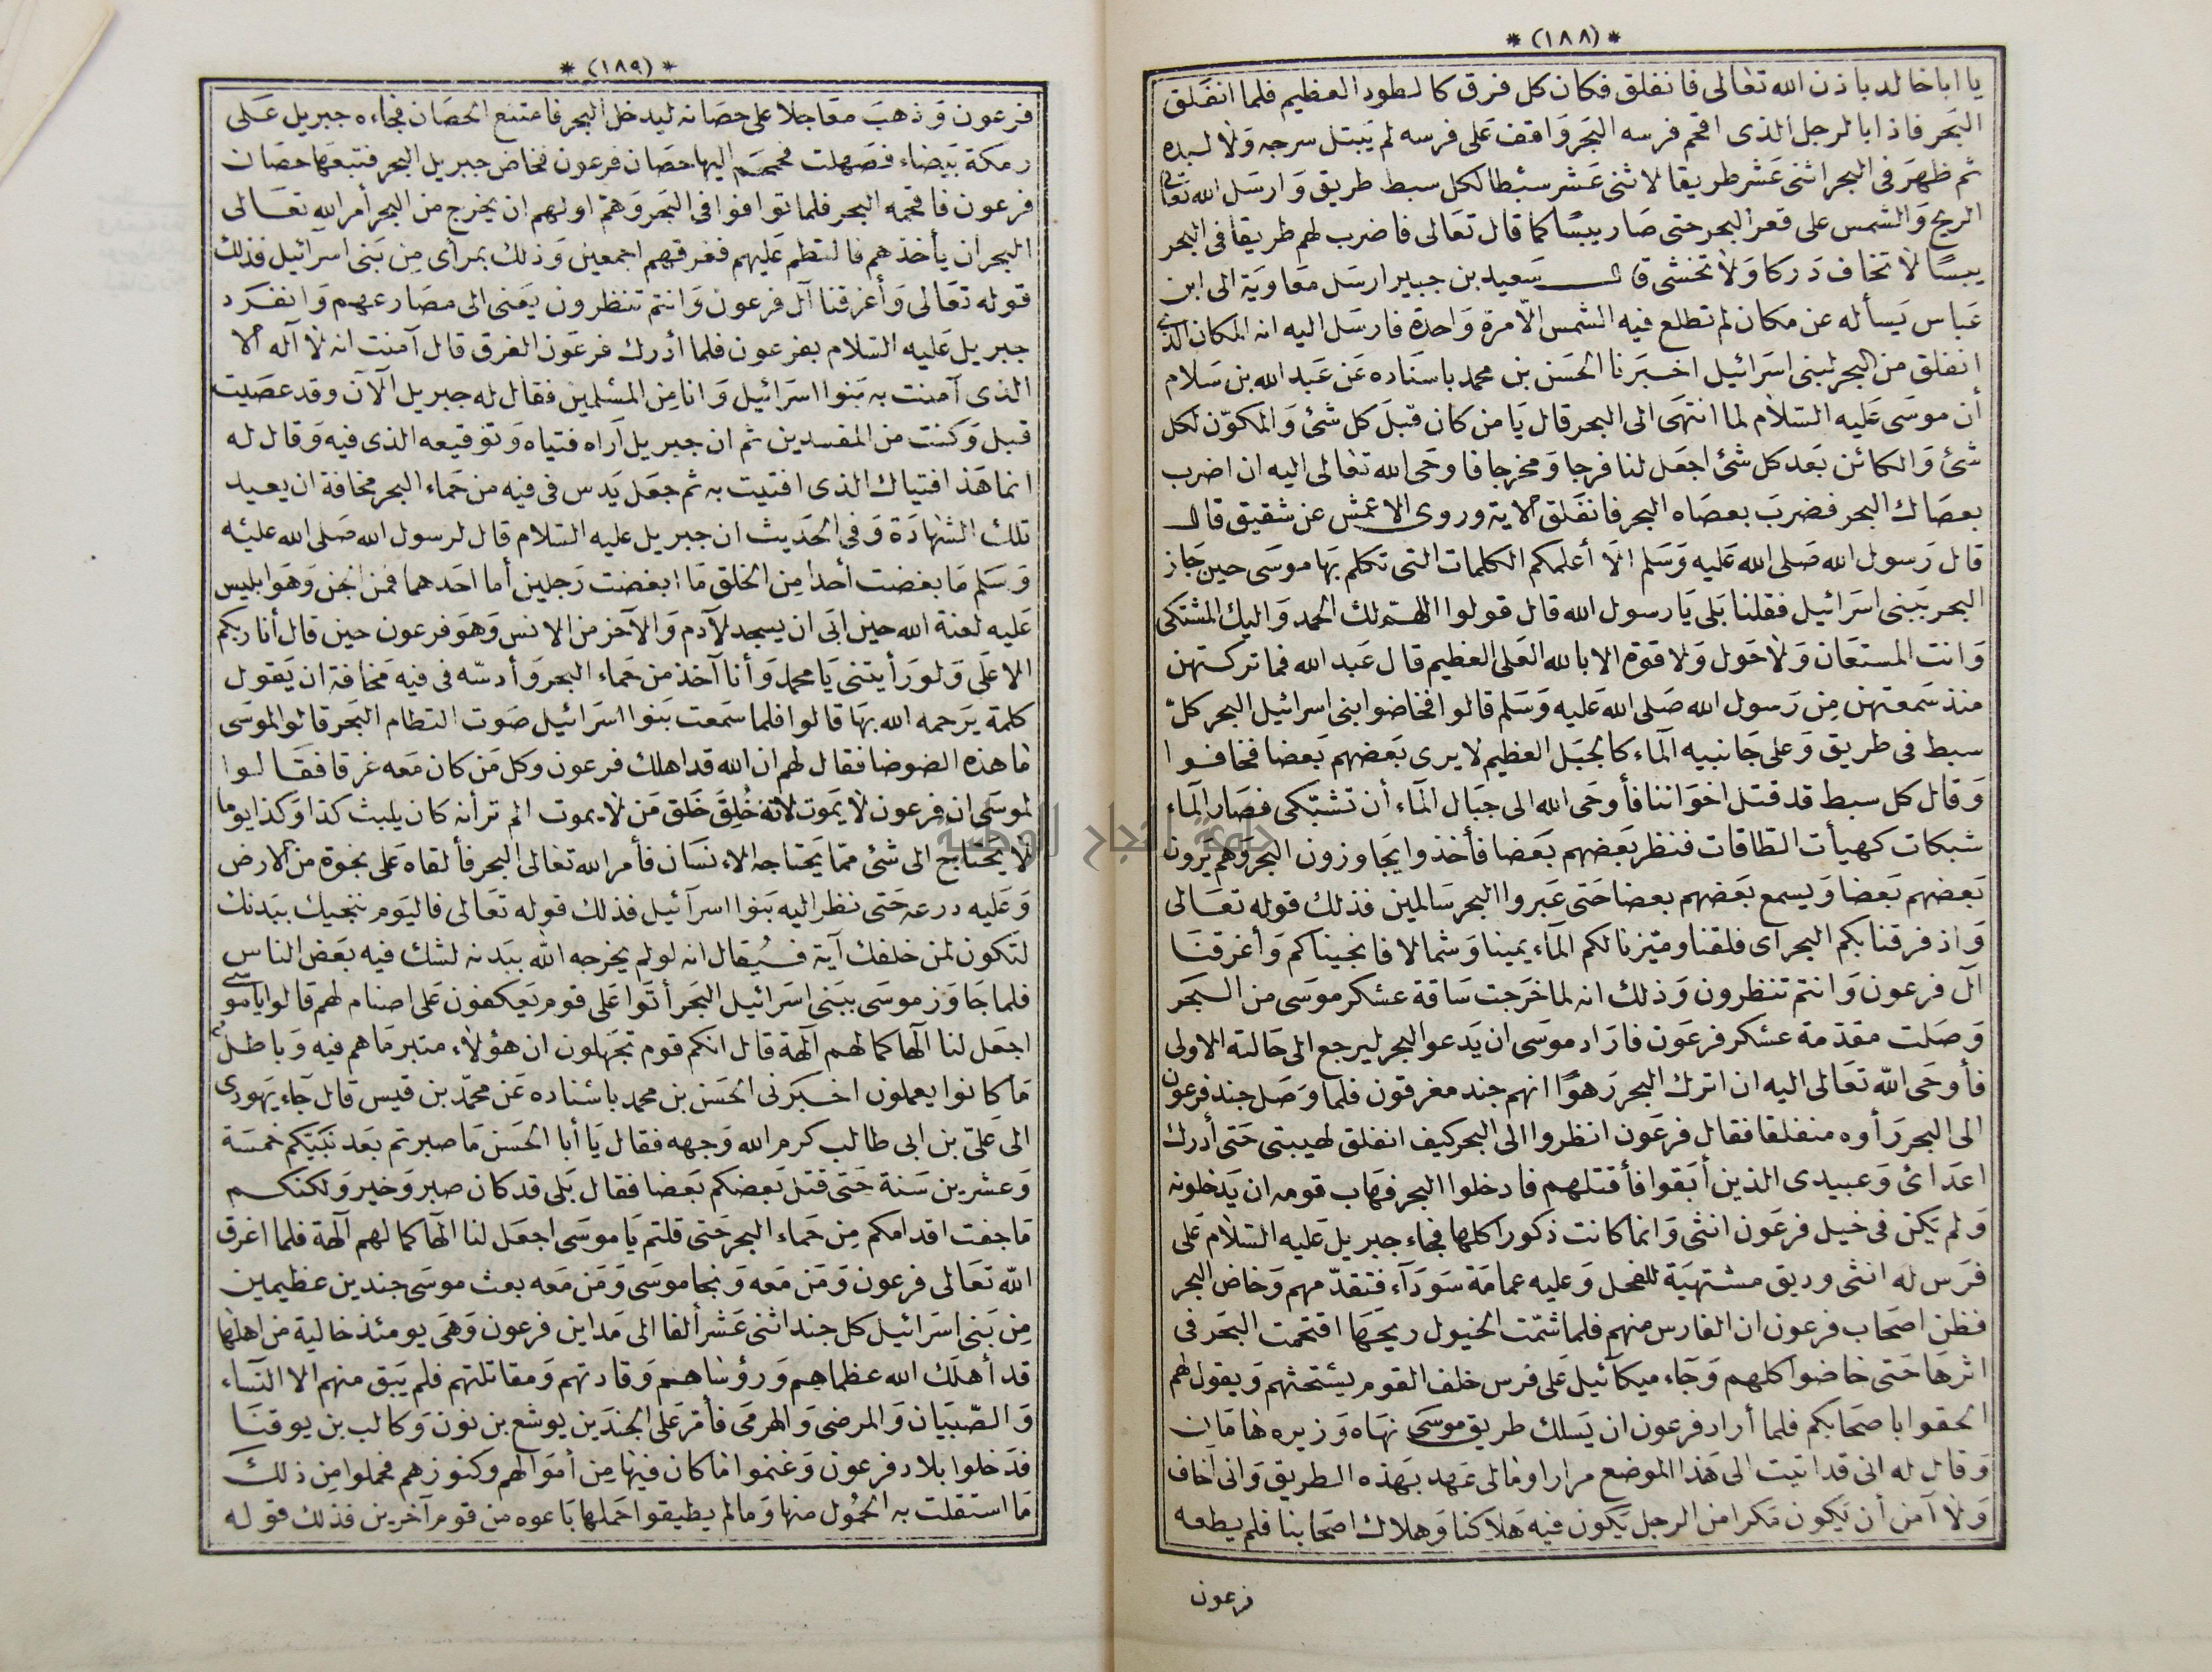 * (١٨٨) *
يا ابا خالد باذن الله تعالى فانفلق فكان كل فرق كالطود العظيم فلما انفلق
البحر فاذا بالرجل الذى اقحم فرسه البحر واقف على فرسه لم يبتل سرجه ولا لبده
ثم ظهر فى البحر اثنى عشر طريقا لاثنى عشر سبطا لكل سبط طريق وارسل الله تعالى
الريح والشمس على قعر البحر حتى صار يبسا كما قال تعالى فاضرب لهم طريقا فى البحر
يبسا لا تخاف دركا ولا تخشى قال سعيد بن جبير ارسل معاوية الى ابن
عباس يسأله عن مكان لم تطلع فيه الشمس الا مرة واحدة فارسل اليه انه المكان الذى
انفلق من البحر لبنى اسرائيل اخبرنا الحسن بن محمد باسناده عن عبد الله بن سلام
أن موسى عليه السلام لما انتهى الى البحر قال يا من كان قبل كل شئ والمكون لكل
شئ والكائن بعد كل شئ اجعل لنا فرجا ومخرجا فاوحى الله تعالى اليه ان اضرب
بعصاك البحر فضرب بعصاه البحر فانفلق الاية وروى الاعمش عن شقيق قال
قال رسول الله صلى الله عليه وسلم الا أعلمكم الكلمات التى تكلم بها موسى حين جاز
البحر ببنى اسرائيل فقلنا بلى يا رسول الله قال قولوا اللهم لك الحمد واليك المشتكى
وانت المستعان ولا حول ولا قوة الا بالله العلى العظيم قال عبد الله فما تركتهن
منذ سمعتهن من رسول الله صلى الله عليه وسلم قالوا فخاضوا بنى اسرائيل البحر كل
سبط فى طريق وعلى جانبيه الماء كالجبل العظيم لا يرى بعضهم بعضا فخافوا
وقال كل سبط قد قتل اخواننا فأوحى الله الى جبال الماء أن تشبكى فصار الماء
شبكات كهيأت الطاقات فنظر بعضهم بعضا فأخذوا يجاوزون البحر وهم يرون
بعضهم بعضا ويسمع بعضهم بعضا حتى عبروا البحر سالمين فذلك قوله تعالى
واذ فرقنا بكم البحر اى فلقنا وميزنا لكم الماء يمينا وشمالا فانجيناكم وأغرقنا
آل فرعون وانتم تنظرون وذلك انه لما خرجت ساقة عسكر موسى من البحر
وصلت مقدمة عسكر فرعون فاراد موسى ان يدعو البحر ليرجع الى حالته الاولى
فأوحى الله تعالى اليه ان اترك البحر رهوا انهم جند مغرقون فلما وصل جند فرعون
الى البحر رأوه منفلقا فقال فرعون انظروا الى البحر كيف انفلق لهيبتى حتى أدرك
اعدائ وعبيدى الذين أبقوا فأقتلهم فادخلوا البحر فهاب قومه ان يدخلونه
ولم يكن فى خيل فرعون انثى وانما كانت ذكورا كلها فجاء جبريل عليه السلام على
فرس له انثى وديق مشتهية للفحل وعليه عمامة سوداء فتقدمهم وخاض البحر
فظن اصحاب فرعون ان الفارس منهم فلما شمت الخيول ريحها اقتحمت البحر فى
اثرها حتى خاضوا كلهم وجاء ميكائيل على فرس خلف القوم يستحثهم ويقول لهم
الحقوا باصحابكم فلما أراد فرعون ان يسلك طريق موسى نهاه وزيره هامان
وقال له انى قد اتيت الى هذا الموضع مرارا ومالى عهد بهذه الطريق وانى أخاف
ولا آمن أن يكون مكرا من الرجل يكون فيه هلاكنا وهلاك اصحابنا فلم يطعه
فرعون
* (١٨٩) *
فرعون وذهب معاجلا على حصانه ليدخل البحر فامتنع الحصان فجاءه جبريل على
رمكة بيضاء فصهلت فحمحم اليها حصان فرعون فخاض جبريل البحر فتبعها حصان
فرعون فاقحمه البحر فلما توافوا فى البحر وهمّ اولهم ان يخرج من البحر أمر الله تعالى
البحر ان يأخذهم فالتطم عليهم فغرقهم اجمعين وذلك بمرأى من بنى اسرائيل فذلك
قوله تعالى وأغرقنا آل فرعون وانتم تنظرون يعنى الى مصارعهم وانفرد
جبريل عليه السلام بفرعون فلما أدرك فرعون الغرق قال آمنت انه لا اله الا
الذى آمنت به بنوا اسرائيل وانا من المسلمين فقال له جبريل الآن وقد عصيت
قبل وكنت من المفسدين ثم ان جبريل أراه فتياه وتوقيعه الذى فيه وقال له
انما هذا فتياك الذى افتيت به ثم جعل يدس فى فيه من حماء البحر مخافة ان يعيد
تلك الشهادة وفى الحديث ان جبريل عليه السلام قال لرسول الله صلى الله عليه
وسلم ما بغضت أحدا من الخلق ما ابغضت رجلين أما احدهما فمن الجن وهو ابليس
عليه لعنة الله حين ابى ان يسجد لآدم والآخر من الانس وهو فرعون حين قال أنا ربكم
الاعلى ولو رأيتنى يا محمد وأنا آخذ من حماء البحر وأدسه فى فيه مخافة ان يقول
كلمة يرحمه الله بها قالوا فلما سمعت بنوا اسرائيل صوت التطام البحر قالوا لموسى
ما هذه الضوضا فقال لهم ان الله قد اهلك فرعون وكل من كان معه غرقا فقالوا
لموسى ان فرعون لا يموت لانه خُلِقَ خَلق من لا يموت الم تر أنه كان يلبث كذا وكذا يوما
لا يحتاج الى شئ مما يحتاجه الانسان فأمر الله تعالى البحر فألقاه على نجوة من الارض
وعليه درعه حتى نظر اليه بنوا اسرآئيل فذلك قوله تعالى فاليوم ننجيك ببدنك
لتكون لمن خلفك آية فيُقال انه لو لم يخرجه الله ببدنه لشك فيه بعض الناس
فلما جاوز موسى ببنى اسرائيل البحر أتوا على قوم يعكفون على اصنام لهم قالوا يا موسى
اجعل لنا آلها كما لهم آلهة قال انكم قوم تجهلون ان هؤلاء متبر ما هم فيه وباطل
ما كانوا يعملون اخبرنى الحسن بن محمد باسناده عن محمد بن قيس قال جاء يهودى
الى على بن ابى طالب كرم الله وجهه فقال يا أبا الحسن ما صبرتم بعد نبيكم خمسة
وعشرين سنة حتى قتل بعضكم بعضا فقال بلى قد كان صبر وخير ولكنكم
ما جفت اقدامكم من حماء البحر حتى قلتم يا موسى اجعل لنا الها كما لهم آلهة فلما اغرق
الله تعالى فرعون ومن معه ونجا موسى ومن معه بعث موسى جندين عظيمين
من بنى اسرائيل كل جند اثنى عشر ألفا الى مداين فرعون وهى يومئذ خالية من اهلها
قد أهلك الله عظماهم ورؤساهم وقادتهم ومقاتلتهم فلم يبق منهم الا النساء
والصبيان والمرضى والهرمى فأمر على الجندين يوشع بن نون وكالب بن يوقنا
فدخلوا بلاد فرعون وغنموا ما كان فيها من أموالهم وكنوزهم فحملوا من ذلك
ما استقلت به الحُمول منها وما لم يطيقوا حملها باعوه من قوم آخرين فذلك قوله
جامعة النجاح الوطنية